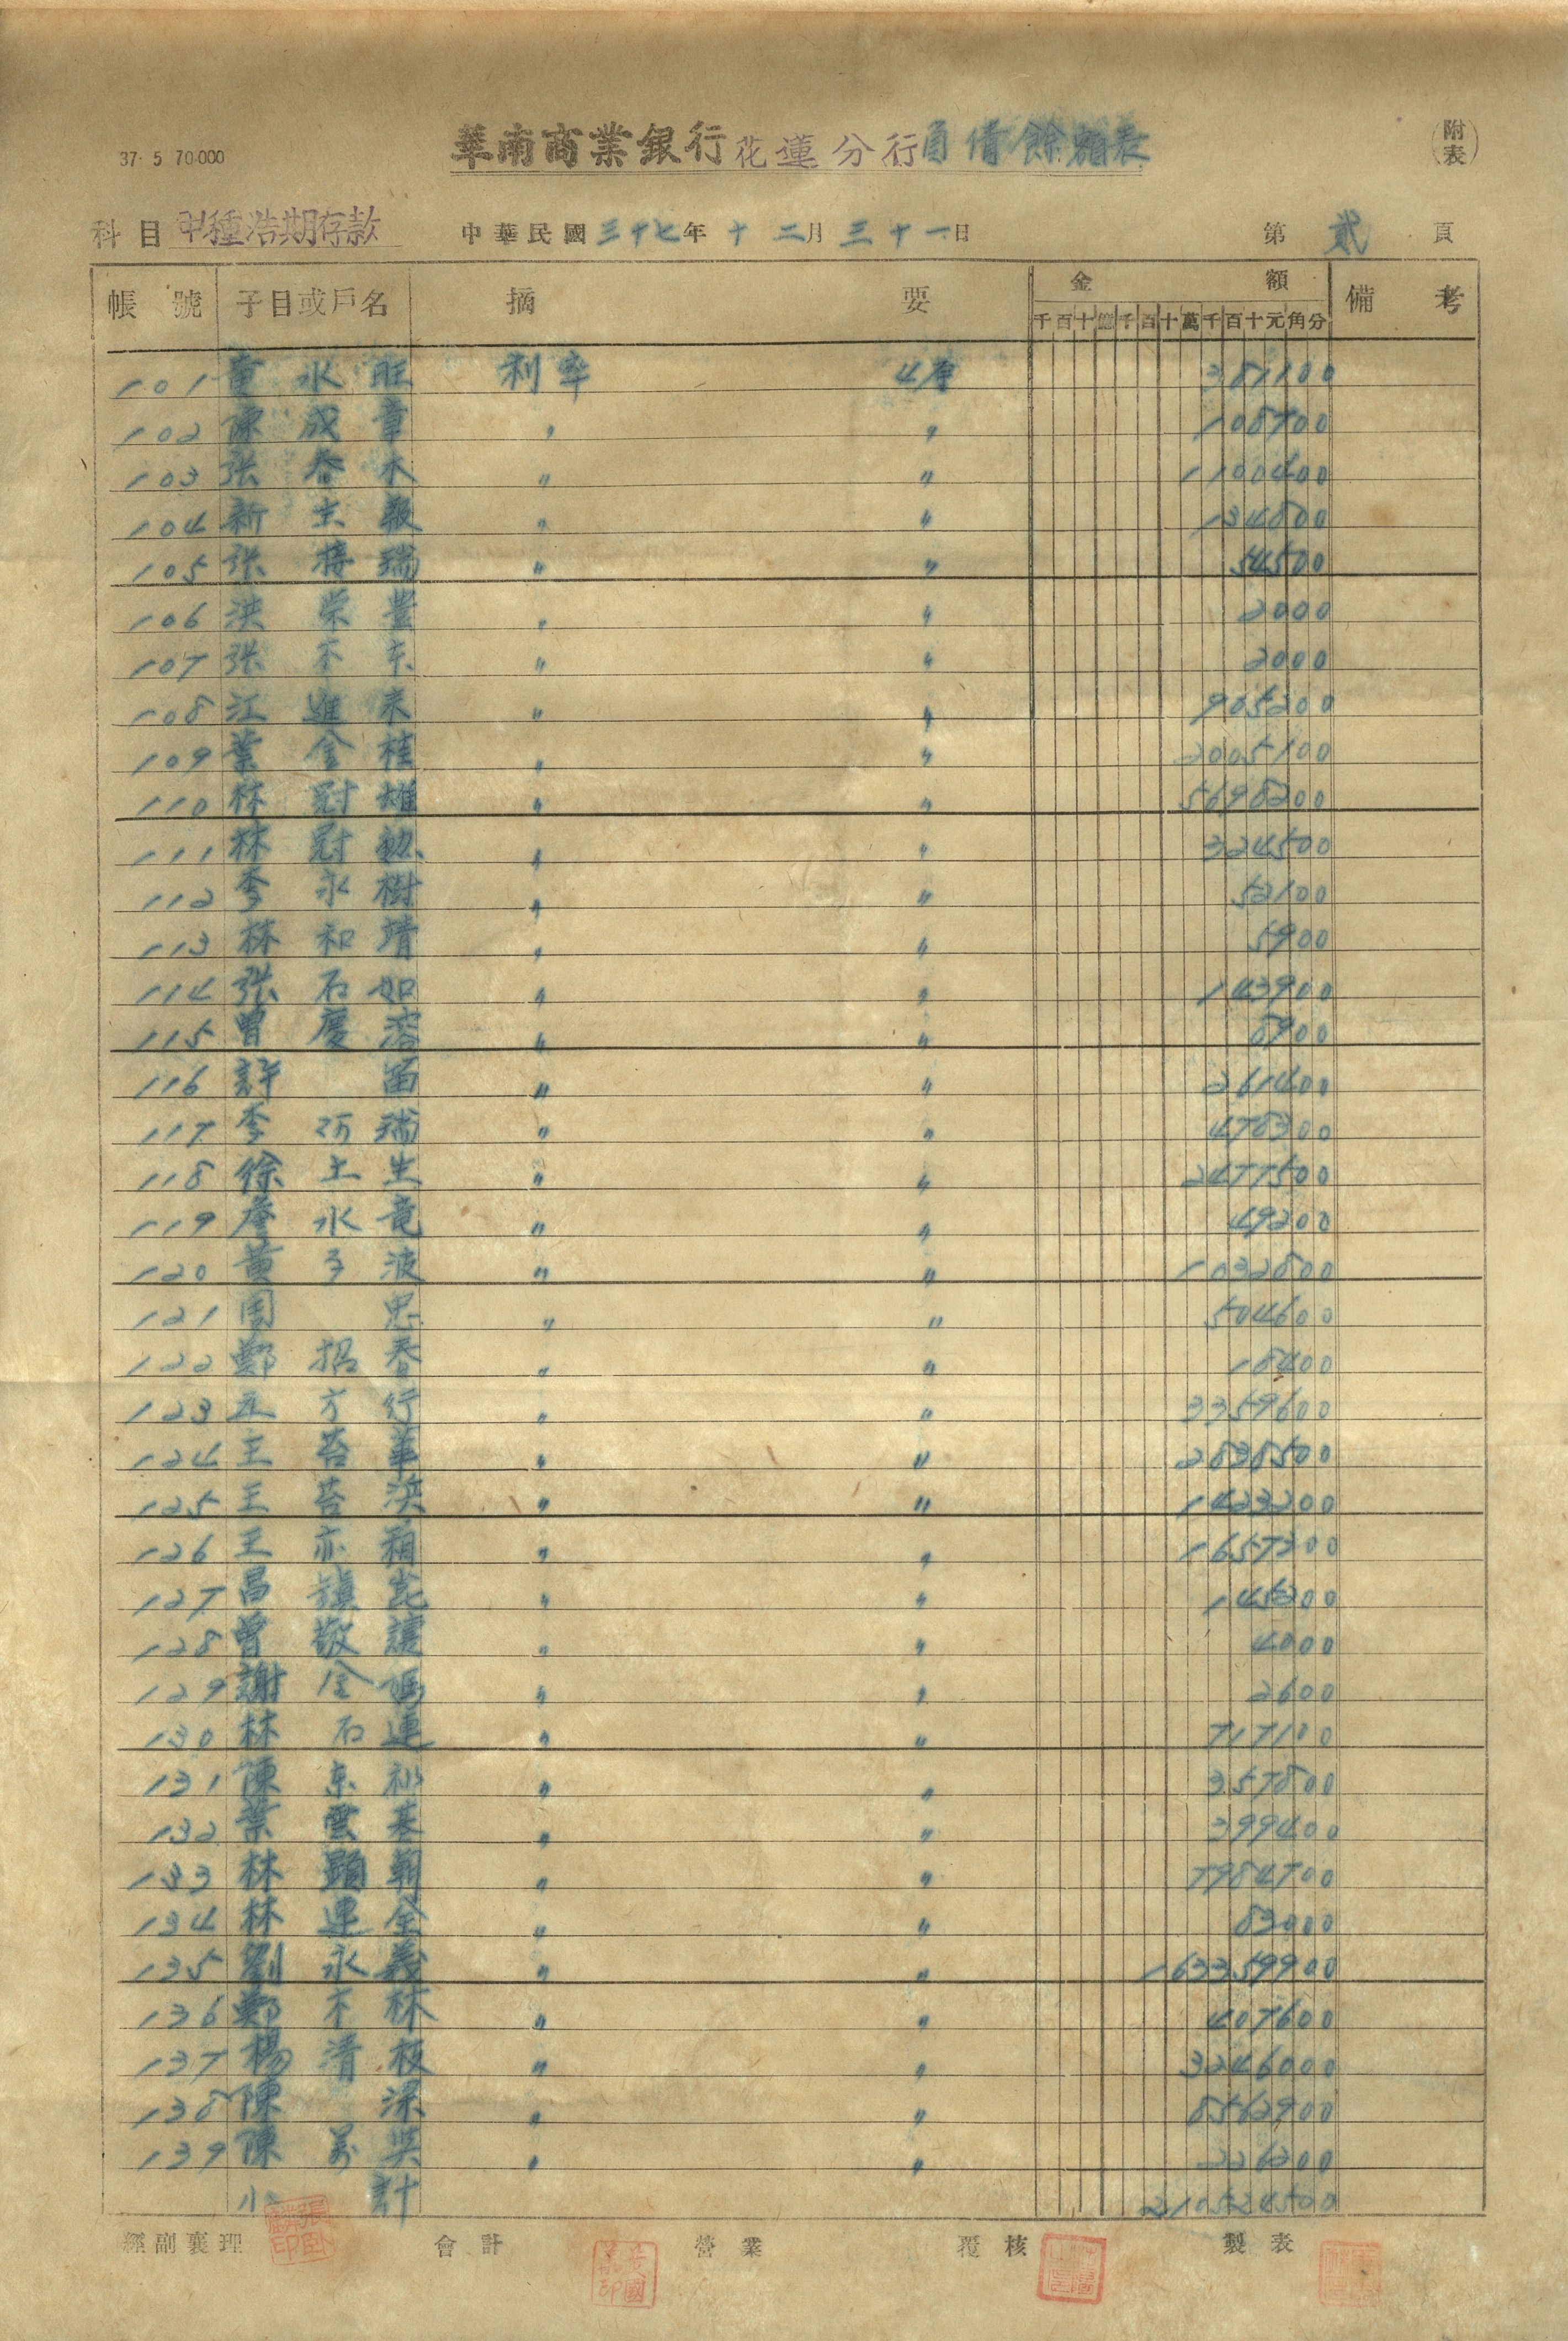 37. 5 70.000
華南商業銀行花蓮分行負債餘額表
附表
科目 甲種活期存款 中華民國三十七年十二月三十一日 第貳頁
帳號 子目或戶名 摘要 金額 備考
千百十億千百十萬千百十元角分
101 黃水旺 利率 4厘 381100
102 陳成章 〃 〃 108700
103 張春木 〃 〃 1100400
104 新生報 〃 〃 134800
105 張接瑞 〃 〃 54500
106 洪榮豐 〃 〃 2000
107 張不東 〃 〃 2000
108 江進來 〃 〃 905200
109 葉金桂 〃 〃 2005100
110 林冠雄 〃 〃 5698200
111 林冠勳 〃 〃 324500
112 李永樹 〃 〃 52100
113 林和靖 〃 〃 5900
114 張石如 〃 〃 143900
115 曾慶溶 〃 〃 8900
116 許笛 〃 〃 261400
117 李阿瑞 〃 〃 478300
118 徐土生 〃 〃 2477500
119 詹水竜 〃 〃 49200
120 黃子波 〃 〃 1032800
121 周忠 〃 〃 504600
122 鄭招春 〃 〃 18400
123 五方行 〃 〃 3359600
124 王苔華 〃 〃 2838500
125 王苔浜 〃 〃 1423200
126 王亦箱 〃 〃 1657300
127 昌鎮 〃 〃 145200
128 曾敬讓 〃 〃 4000
129 謝金 〃 〃 2600
130 林石連 〃 〃 717100
131 陳東 〃 〃 357800
132 葉雲基 〃 〃 399400
133 林顯朝 〃 〃 7984700
134 林連金 〃 〃 83000
135 劉永義 〃 〃 163359900
136 鄭不林 〃 〃 407600
137 楊清枝 〃 〃 3246000
138 陳深 〃 〃 8562900
139 陳昊 〃 〃 226200
小計 210524500
經副襄理 會計 營業 覆核 製表